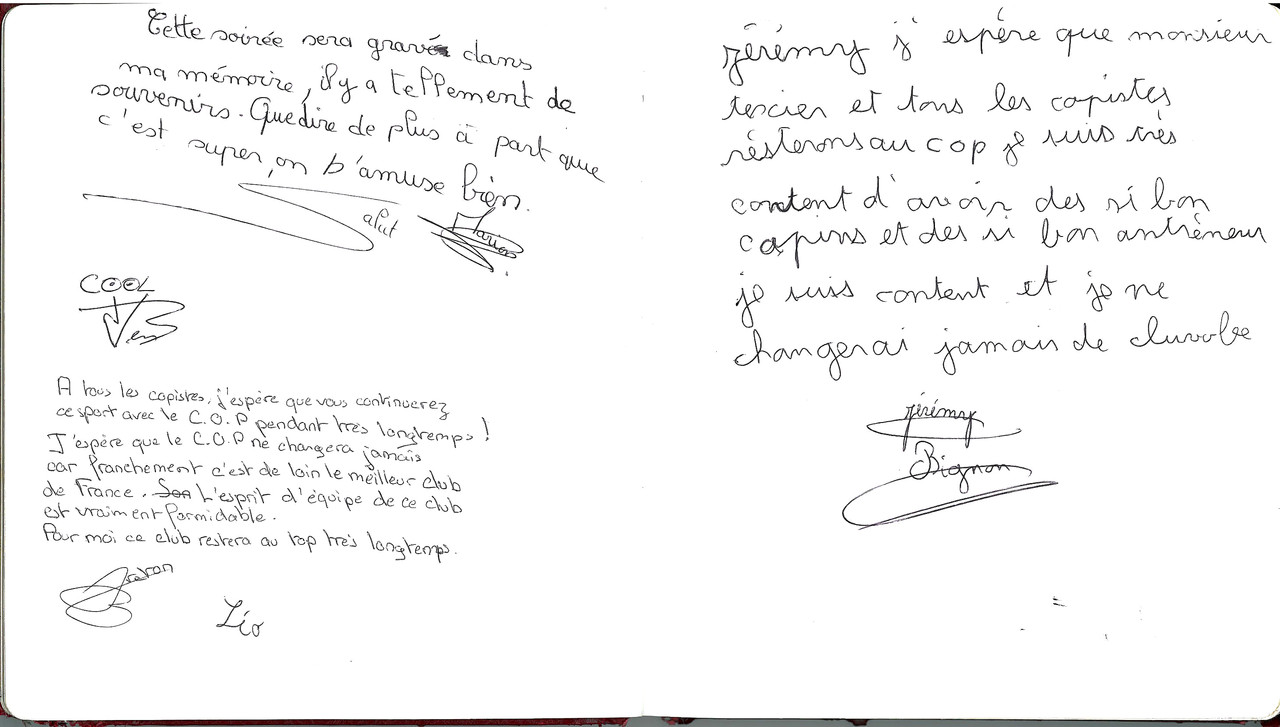 Cette soirée sera gravée dans
ma mémoire, il y a tellement de
souvenirs. Que dire de plus à part que
c'est super, on b'amuse bien.
alut
Marion
COOL
A tous les copistes, j'espère que vous continuerez
ce sport avec le C.O.P pendant très longtemps !
J'espère que le C.O.P ne changera jamais
car franchement c'est de loin le meilleur club
de France. Son L'esprit d'équipe de ce club
est vraiment formidable.
Pour moi ce club restera au top très longtemps.
Léo
jérémy j'espère que monsieur
tescier et tous les copistes
résterons au cop je suis très
content d'avoir des si bon
copins et des si bon antrêneur
je suis content et je ne
changerai jamais de
jérémy
Bignon